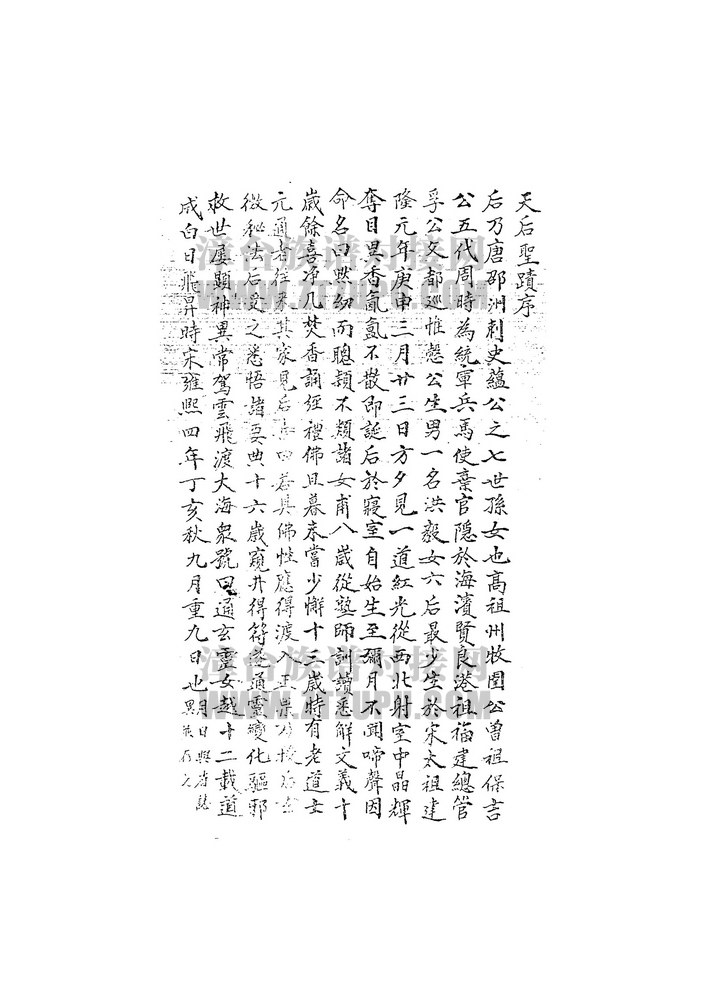 天后聖蹟序
后乃唐邵洲刺史蘊公之七世孫女也高祖州牧圉公曾祖保吉
公五代周時為統軍兵馬使棄官隱於海濱賢良港祖福建總管
孚公父都巡惟慤公生男一名洪毅女六后最少生於宋太祖建
隆元年庚申三月廿三日方夕見一道紅光從西北射室中晶輝
奪目異香氤氳不散即誕后於寢室自始生至彌月不聞啼聲因
命名曰默幼而聰穎不類諸女甫八歲從塾師訓讀悉解文義十
歲餘喜净几焚香誦經禮佛旦暮未嘗少懈十三歲時有老道士
元通者往來其家見后曰若具佛性應得渡入正果乃授后玄
微秘法后受之悉悟諸要典十六歲窺井得符遂通靈變化驅邪
救世屢顯神異常駕雲飛渡大海衆號曰通玄靈女越十二載道
成白日飛昇時宋雍熙四年丁亥秋九月重九日也
漳台族谱对接网
WWW.ZTZUPU.COM
漳台族谱对接网
WWW.ZTZUPU.COM